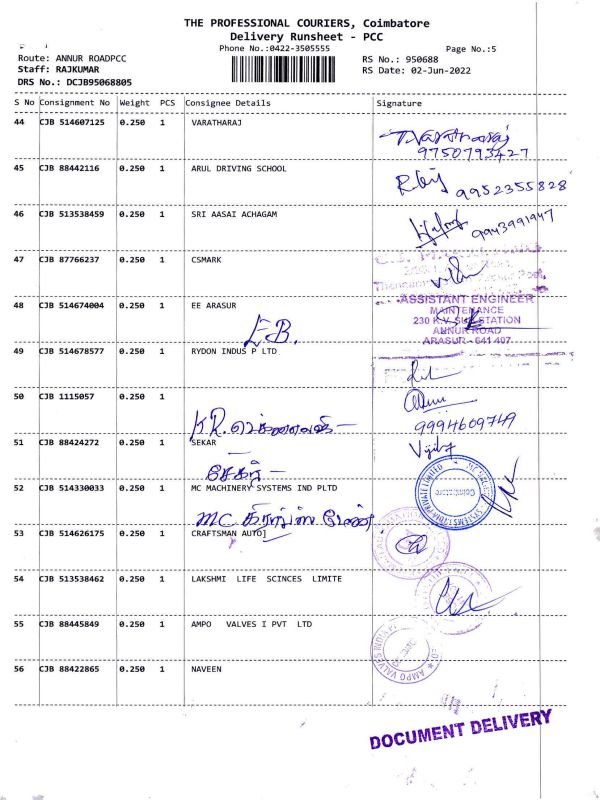 THE PROFESSIONAL COURIERS, Coimbatore
Delivery Runsheet - PCC
Phone No.:0422-3505555
Page No.:5
Route: ANNUR ROADPCC
RS No.: 950688
Staff: RAJKUMAR
RS Date: 02-Jun-2022
DRS No.: DCJB95068805
S No Consignment No Weight PCS Consignee Details Signature
44 CJB 514607125 0.250 1 VARATHARAJ
9750793427
45 CJB 88442116 0.250 1 ARUL DRIVING SCHOOL
9952355828
46 CJB 513538459 0.250 1 SRI AASAI ACHAGAM
9943991947
47 CJB 87766237 0.250 1 CSMARK
48 CJB 514674004 0.250 1 EE ARASUR
ASSISTANT ENGINEER
MAINTENANCE
230 K.V. SUB STATION
ANNUR ROAD
ARASUR - 641 407.
E.B.
49 CJB 514678577 0.250 1 RYDON INDUS P LTD
50 CJB 1115057 0.250 1
9994609749
51 CJB 88424272 0.250 1 SEKAR
சேகர்
52 CJB 514330033 0.250 1 MC MACHINERY SYSTEMS IND PLTD
Coimbatore
MC
53 CJB 514626175 0.250 1 CRAFTSMAN AUTO
54 CJB 513538462 0.250 1 LAKSHMI LIFE SCINCES LIMITE
55 CJB 88445849 0.250 1 AMPO VALVES I PVT LTD
AMPO VALVES INDIA
56 CJB 88422865 0.250 1 NAVEEN
DOCUMENT DELIVERY